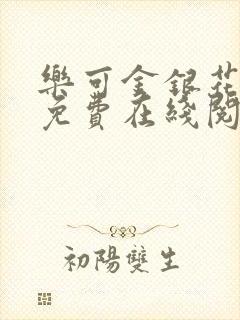 樂可金銀花
免費在綫閱
初陽雙生